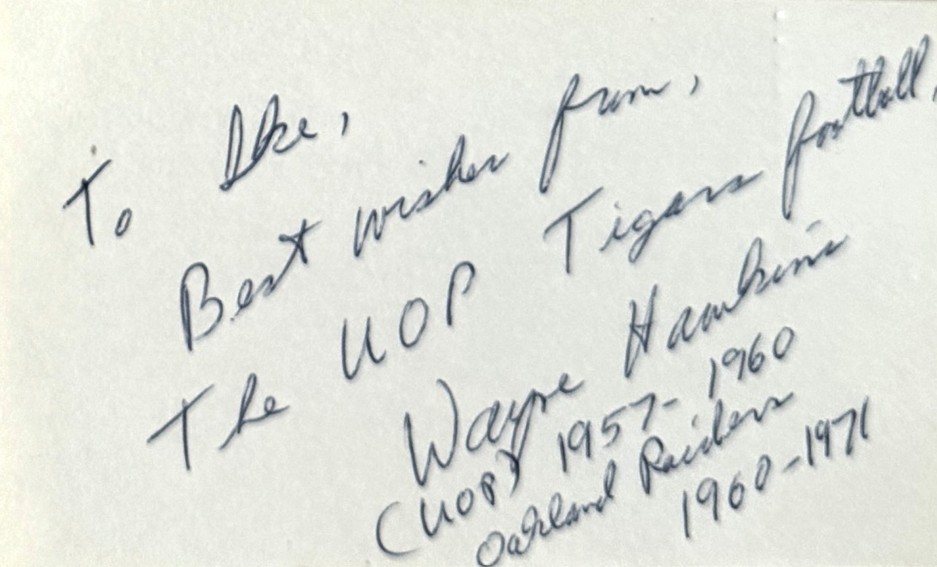 To Ike,
Best wishes from,
The UOP Tigers football,
Wayne Hawkins
(UOP) 1957-1960
Oakland Raiders
1960-1971